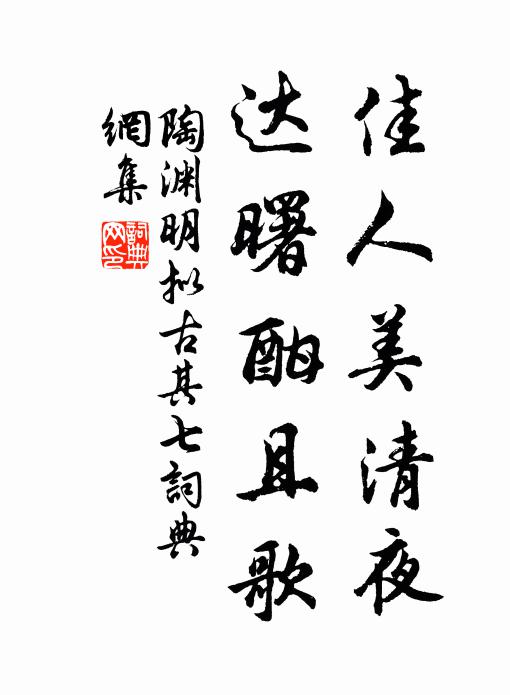 佳人美清夜
达曙酣且歌
陶渊明拟古其七词典
網集
詞典網印